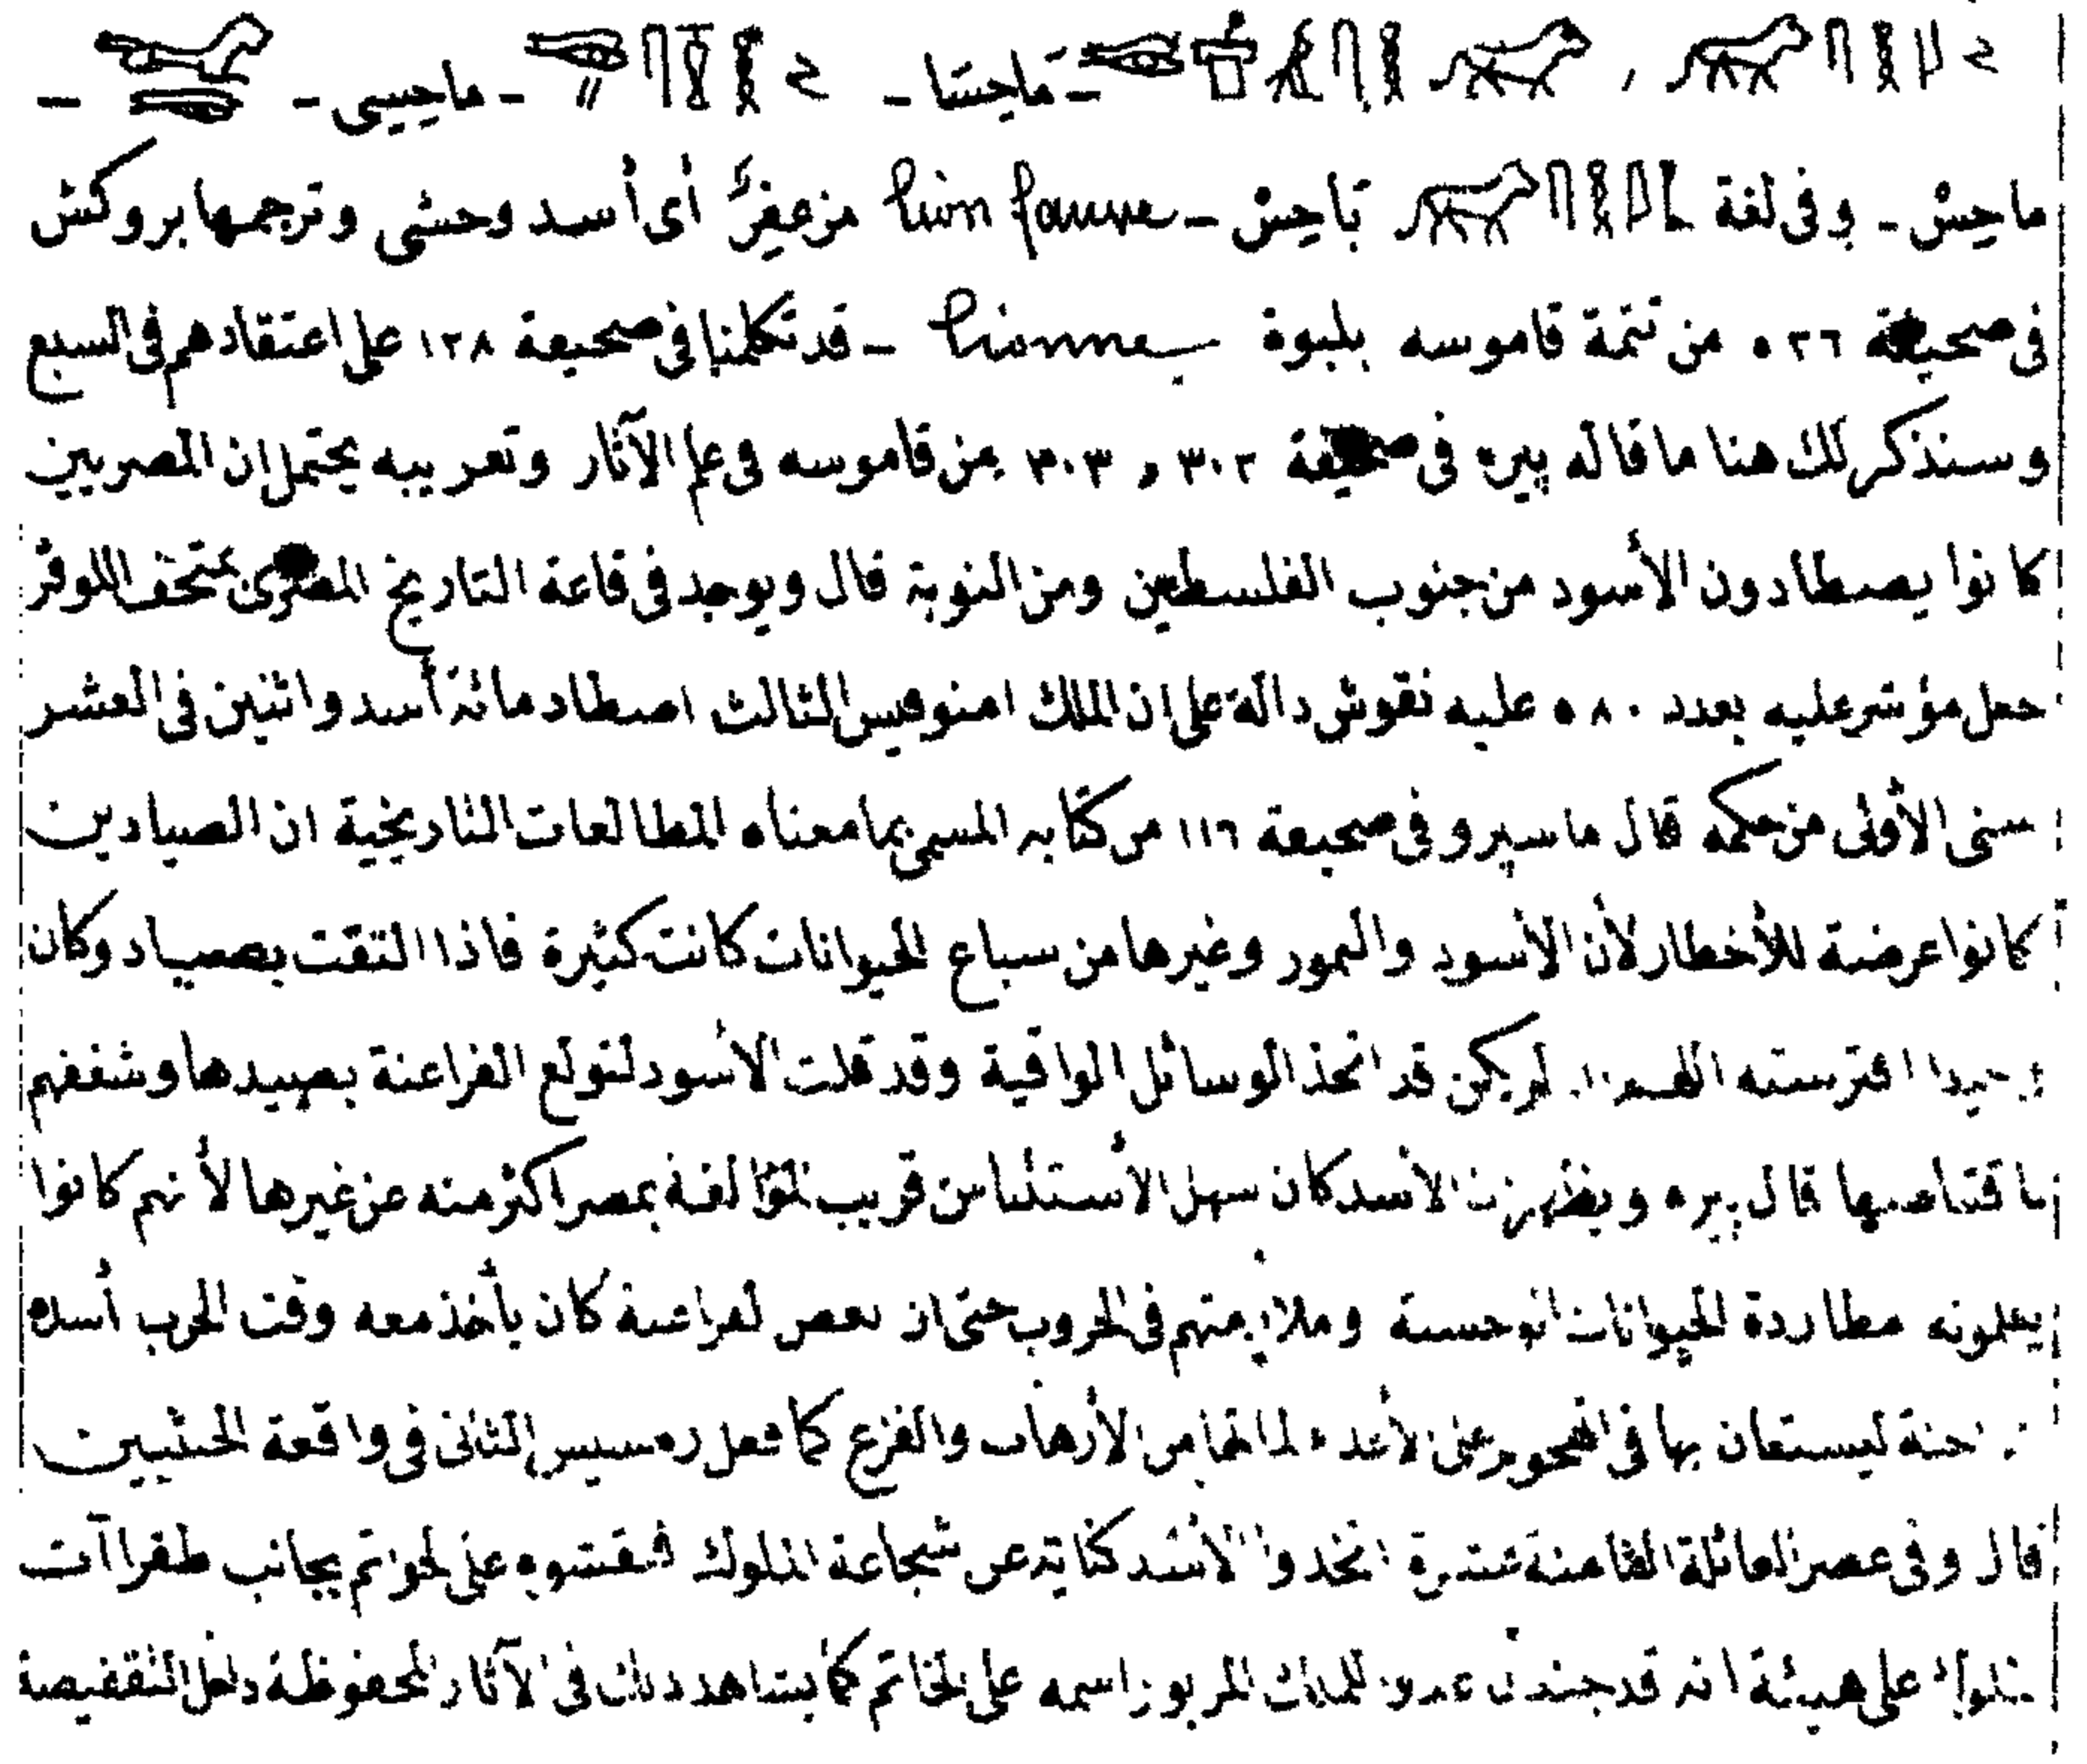 - مَاحِسَا - - ماحِسِى - -
ماحِسْ - وفى لغة تاحِسْ - lion fauve مزعفِرْ أى أسد وحشى وترجمها بروكش
فى صحيفة ٥٢٦ من تتمة قاموسه بلبوة lionne - قد تكلمنا فى صحيعة ١٢٨ على اعتقادهم فى السبع
وسنذكر لك هنا ما قاله پيره فى صحيفة ٣٠٢ و ٣٠٣ من قاموسه فى علم الآثار وتعريبه يحتمل ان المصريين
كانوا يصطادون الأسود من جنوب الفلسطين ومن النوبة قال ويوجد فى قاعة التاريخ المصرى بمتحف اللوفر
جعل مؤشر عليه بعدد ٥٨٠ عليه نقوش دالة على ان الملك امنوفيس الثالث اصطاد مائة أسد واثنين فى العشر
سنى الأولى من حكمه قال ماسپرو فى صحيعة ١١٦ من كتابه المسمى بما معناه المطالعات التاريخية ان الصيادين
كانوا عرضة للأخطار لأن الأسود والنمور وغيرها من سباع الحيوانات كانت كثيرة فاذا التقت بصياد وكان
وحيدا افترسته لم يكن قد اتخذ الوسائل الواقية وقد قلت الأسود لتولع الفراعنة بصيدها وشغفهم
باقتناصها قال پيره ويظهر ان الأسد كان سهل الأستئناس قريب المؤالفة بمصر اكثر منه عن غيرها لأنهم كانوا
يعلمونه مطاردة الحيوانات الوحسية وملازمتهم فى الحروب حتى ان بعض الفراعنة كان يأخذ معه وقت الحرب أسدا
ليستعان بها فى الهجوم على الأعداء لما لها من الأرهاب والفزع كما فعل رمسيس الثانى فى واقعة الحيثيين
قال وفى عصر العائلة الثامنة عشرة اتخذوا الأسد كناية عن شجاعة الملوك فنقشوه على الخواتم بجانب طغراآت
الملوك على هيئة انه قد جندل عدو للملك المربوز اسمه على الخاتم كما يشاهد ذلك فى الآثار المحفوظة داخل التقفيصة